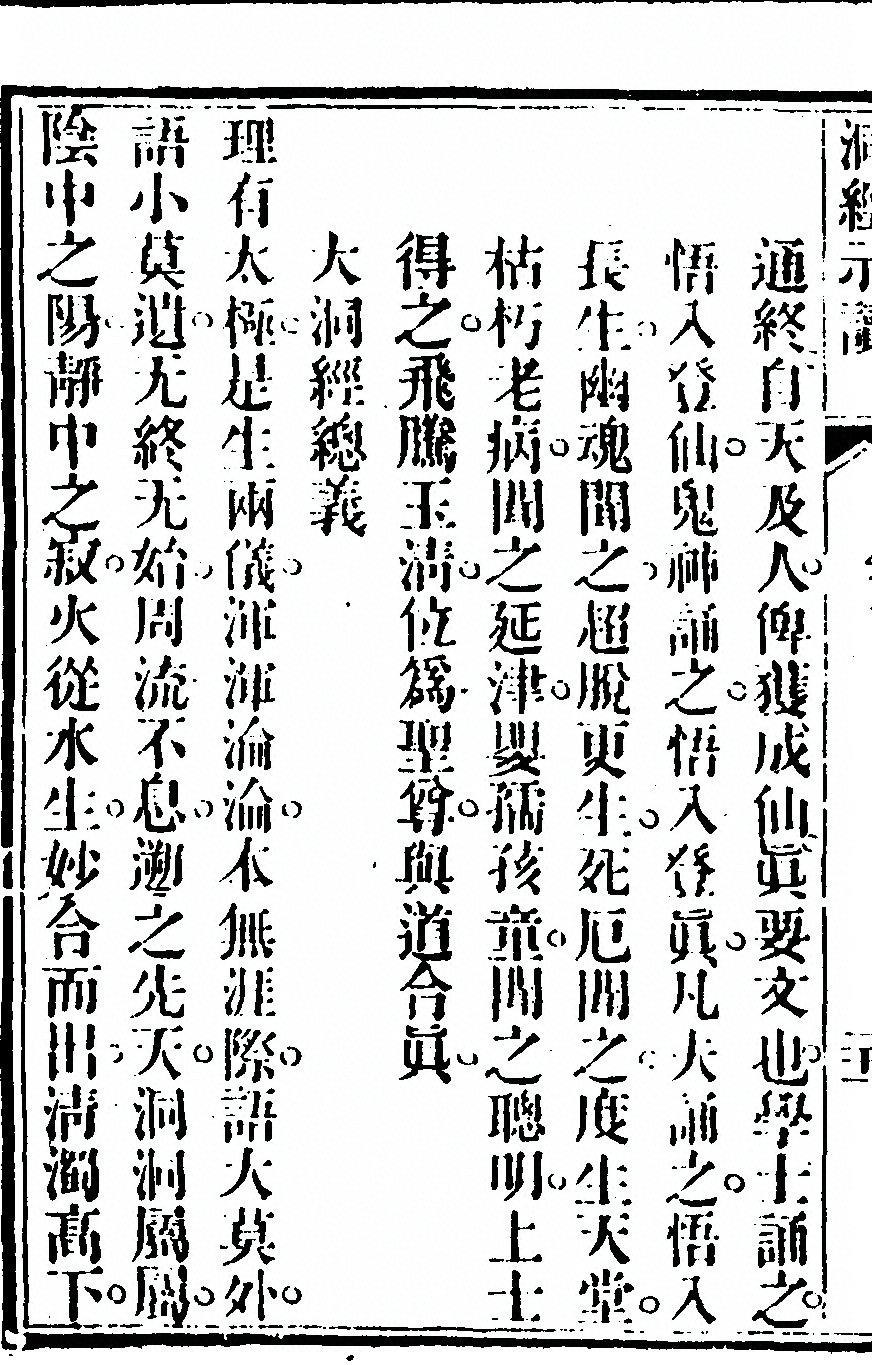 洞經示讀
通終自天及人。俾獲成仙眞要文也。學士誦之。
悟入登仙。鬼神誦之。悟入登眞。凡夫誦之。悟入
長生。幽魂聞之。超脫更生。死厄聞之。度生天堂。
枯朽老病。聞之延津。嬰孺孩童。聞之聰明。上士
得之。飛騰玉清。位爲聖尊。與道合眞。
大洞經總義
理有太極。是生兩儀。渾渾淪淪。本無涯際。語大莫外。
語小莫遺。无終无始。周流不息。遡之先天。洞洞屬屬。
陰中之陽。靜中之寂。火從水生。妙合而出。清濁高下。